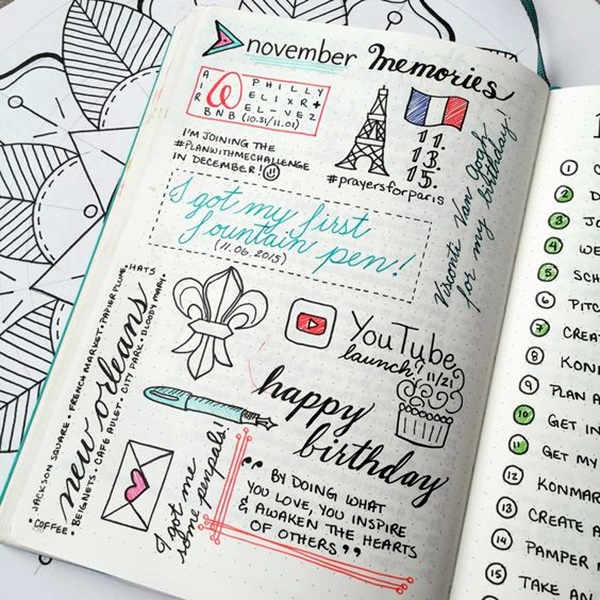 november Memories
AIR
PHILLY
ELIXR +
EL-VEZ
BNB (10.31/11.01)
I'M JOINING THE
#PLANWITHMECHALLENGE
IN DECEMBER!
11.
13.
15.
#prayersforparis
Visconti Van Gogh
for my birthday!
I got my first
fountain pen!
(11.06.2015)
HATS
JACKSON SQUARE • FRENCH MARKET • PAPIER PLUME •
new orleans
• COFFEE • BEIGNETS • CAFE AULET • CITY PARK • BLOODY MARY •
YouTube
launch! 11/21
happy
birthday
I got me
some penpals!
“ BY DOING WHAT
YOU LOVE, YOU INSPIRE
& AWAKEN THE HEARTS
OF OTHERS ”
1
1 C
2 D
3 JO
4 WE
5 SCH
6 PITC
7 CREA
8 KONM
9 PLAN A
10 GET IN
11 GET MY
12 KONMAR
13 CREATE A
14 PAMPER
15 TAKE AN